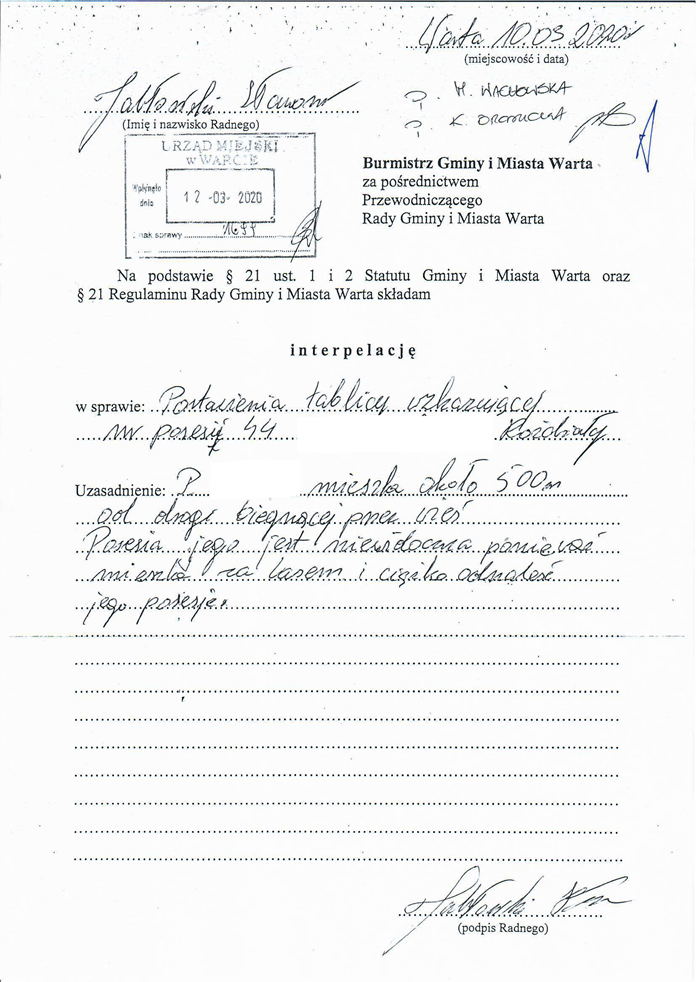 Warta 10.03 2020r
(miejscowość i data)
Jabłoński Sławomir
(Imię i nazwisko Radnego)
P. M. WACHOWSKA
P. K.
URZĄD MIEJSKI
w WARCIE
Wpłynęło
dnia
12 -03- 2020
Znak sprawy
Burmistrz Gminy i Miasta Warta
za pośrednictwem
Przewodniczącego
Rady Gminy i Miasta Warta
Na podstawie § 21 ust. 1 i 2 Statutu Gminy i Miasta Warta oraz
§ 21 Regulaminu Rady Gminy i Miasta Warta składam
interpelację
w sprawie: Postawienia tablicy wskazującej
nr posesji 44 Rożdżały
Uzasadnienie: P. mieszka około 500m
od drogi biegnącej przez wieś
Posesja jego jest niewidoczna ponieważ
mieszka za lasem i ciężko odnaleść
jego posesję.
Jabłoński
(podpis Radnego)